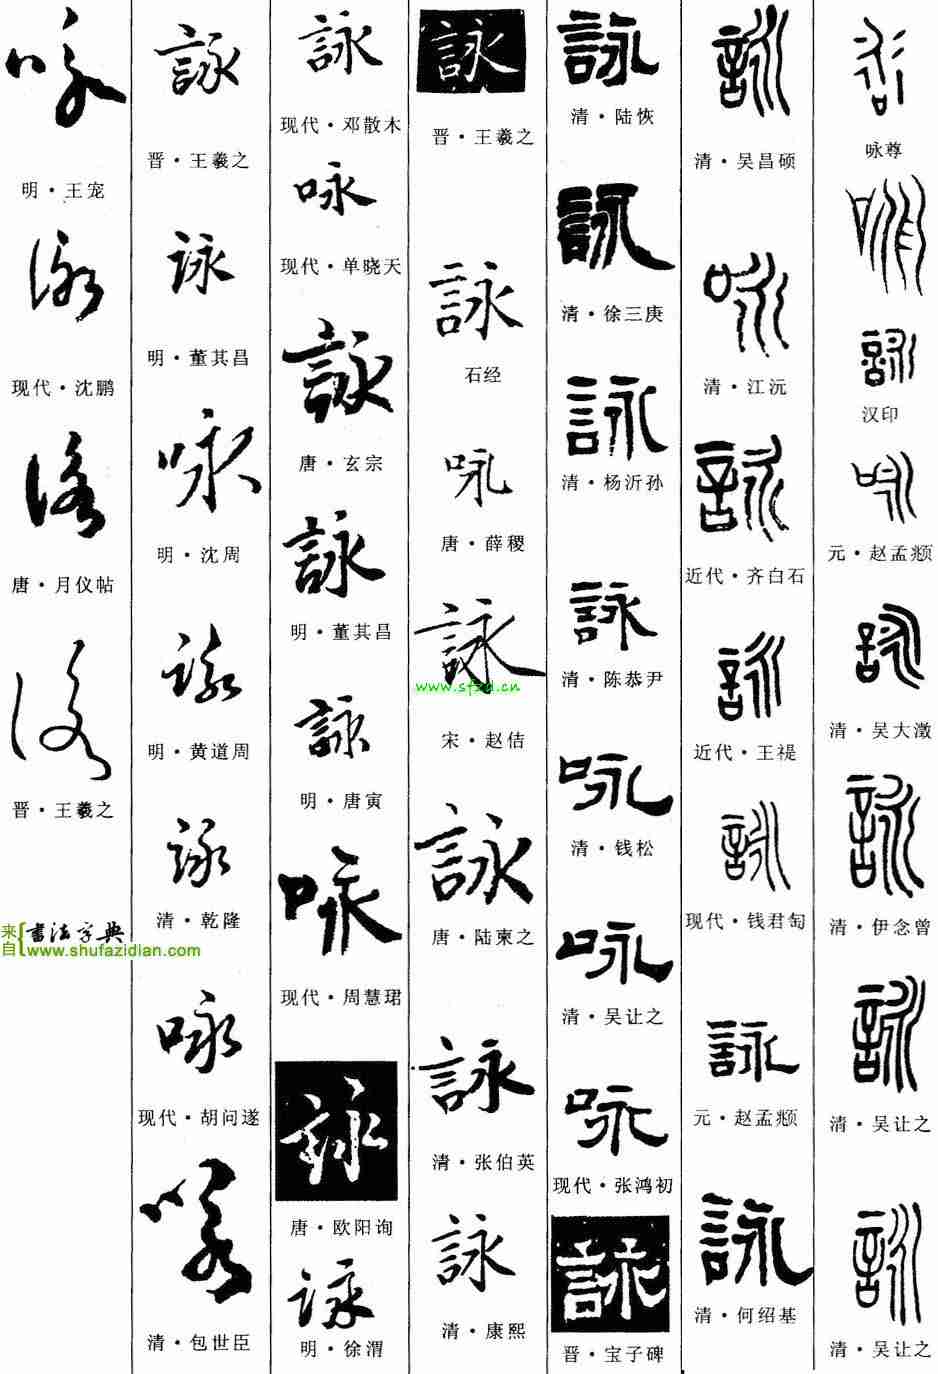 咏
明·王宠
詠
现代·沈鹏
詠
唐·月仪帖
詠
晋·王羲之
来自{书法字典
www.shufazidian.com
詠
晋·王羲之
詠
明·董其昌
咏
明·沈周
詠
明·黄道周
詠
清·乾隆
咏
现代·胡问遂
咏
清·包世臣
詠
现代·邓散木
咏
现代·单晓天
詠
唐·玄宗
詠
明·董其昌
詠
明·唐寅
咏
现代·周慧珺
詠
唐·欧阳询
詠
明·徐渭
詠
晋·王羲之
詠
石经
咏
唐·薛稷
詠
www.sfzd.cn
宋·赵佶
詠
唐·陆柬之
詠
清·张伯英
詠
清·康熙
詠
清·陆恢
詠
清·徐三庚
詠
清·杨沂孙
詠
清·陈恭尹
咏
清·钱松
咏
清·吴让之
咏
现代·张鸿初
詠
晋·宝子碑
詠
清·吴昌硕
咏
清·江沅
詠
近代·齐白石
詠
近代·王禔
詠
现代·钱君匋
詠
元·赵孟頫
詠
清·何绍基
咏
咏尊
咏
詠
汉印
咏
元·赵孟頫
詠
清·吴大澂
詠
清·伊念曾
詠
清·吴让之
詠
清·吴让之